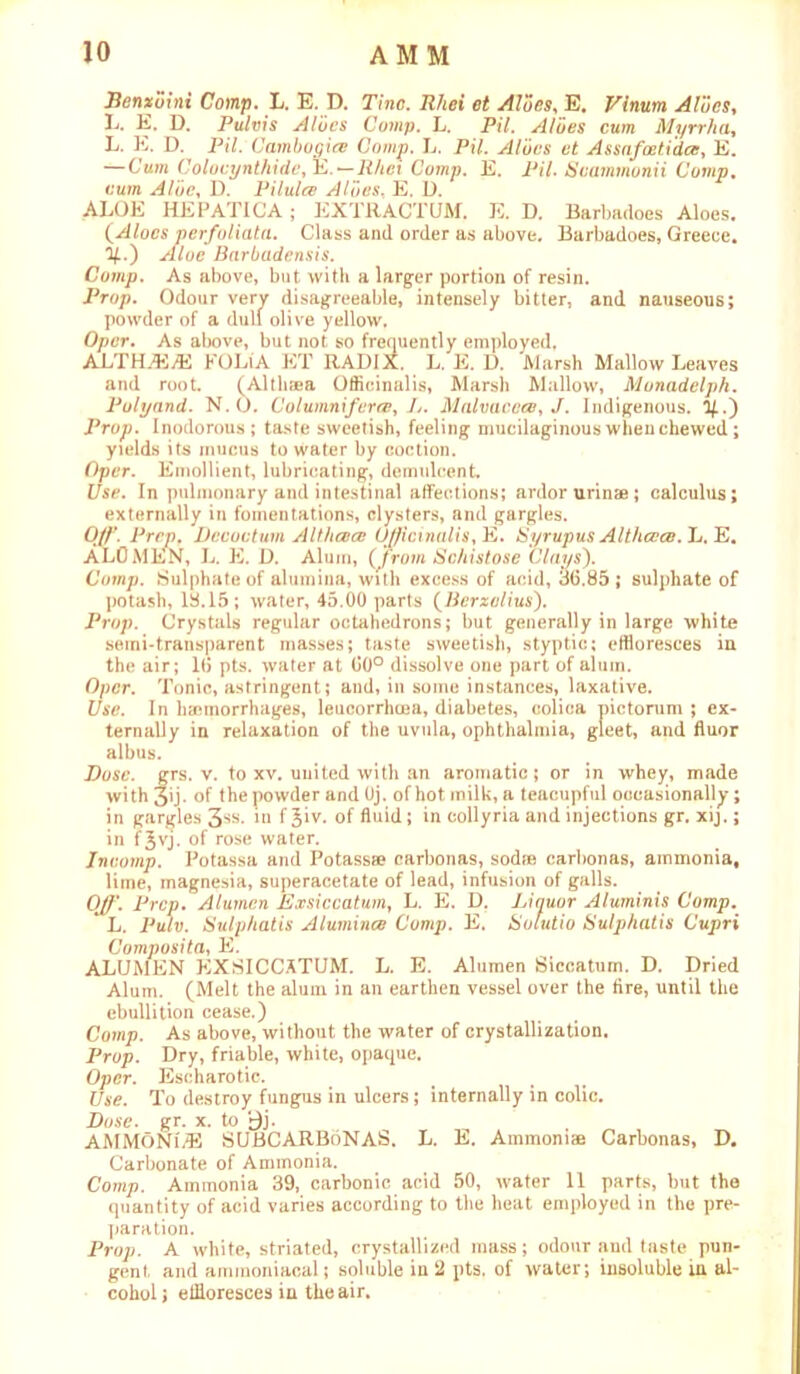 10 AMM
Benzöini Comp. L. E. D. Tinc. Rhei et Alöes, E. Vinum Alöes,
L. E. D. Pulvis Alöes Comp. L. Pil. Alöes cum Myrrha,
L. E. D. Pil. Cambogiæ Comp. L. Pil. Alöes et Assafœtidæ, E.
—Cum Colocynthide, E.—Rhei Comp. E. Pil. Scammonii Comp.
cum Alöe, D. Pilulæ Alöes, E. D.
ALOE HEPATICA; EXTRACTUM. E. D. Barbadoes Aloes.
(Aloes perfoliata. Class and order as above. Barbadoes, Greece.
♃.) Aloe Barbadensis.
Comp. As above, but with a larger portion of resin.
Prop. Odour very disagreeable, intensely bitter, and nauseous;
powder of a dull olive yellow.
Oper. As above, but not so frequently employed.
ALTHÆÆ FOLIA ET RADIX. L. E. D. Marsh Mallow Leaves
and root. (Althæa Officinalis, Marsh Mallow, Monadelph.
Polyand. N. O. Columniferæ, L. Malvaceæ, J. Indigenous. ♃.)
Prop. Inodorous; taste sweetish, feeling mucilaginous when chewed;
yields its mucus to water by coction.
Oper. Emollient, lubricating, demulcent.
Use. In pulmonary and intestinal affections; ardor urinæ; calculus;
externally in fomentations, clysters, and gargles.
Off. Prep. Decoctum Althææ Officinalis, E. Syrupus Althææ. L. E.
ALUMEN, L. E. D. Alum, (from Schistose Clays).
Comp. Sulphate of alumina, with excess of acid, 36.85; sulphate of
potash, 18.15; water, 45.00 parts (Berzelius).
Prop. Crystals regular octahedrons; but generally in large white
semi-transparent masses; taste sweetish, styptic; effloresces in
the air; 16 pts. water at 60° dissolve one part of alum.
Oper. Tonic, astringent; and, in some instances, laxative.
Use. In hæmorrhages, leucorrhœa, diabetes, colica pictorum; ex-
ternally in relaxation of the uvula, ophthalmia, gleet, and fluor
albus.
Dose. grs. v. to xv. united with an aromatic; or in whey, made
with ʒij. of the powder and Oj. of hot milk, a teacupful occasionally;
in gargles ʒss. in f℥iv. of fluid; in collyria and injections gr. xij.;
in f℥vj. of rose water.
Incomp. Potassa and Potassæ carbonas, sodæ carbonas, ammonia,
lime, magnesia, superacetate of lead, infusion of galls.
Off. Prep. Alumen Exsiccatum, L. E. D. Liquor Aluminis Comp.
L. Pulv. Sulphatis Aluminæ Comp. E. Solutio Sulphatis Cupri
Composita, E.
ALUMEN EXSICCATUM. L. E. Alumen Siccatum. D. Dried
Alum. (Melt the alum in an earthen vessel over the fire, until the
ebullition cease.)
Comp. As above, without the water of crystallization.
Prop. Dry, friable, white, opaque.
Oper. Escharotic.
Use. To destroy fungus in ulcers; internally in colic.
Dose. gr. x. to ℈j.
AMMONIÆ SUBCARBONAS. L. E. Ammoniæ Carbonas, D.
Carbonate of Ammonia.
Comp. Ammonia 39, carbonic acid 50, water 11 parts, but the
quantity of acid varies according to the heat employed in the pre-
paration.
Prop. A white, striated, crystallized mass; odour and taste pun-
gent and ammoniacal; soluble in 2 pts. of water; insoluble in al-
cohol; effloresces in the air.